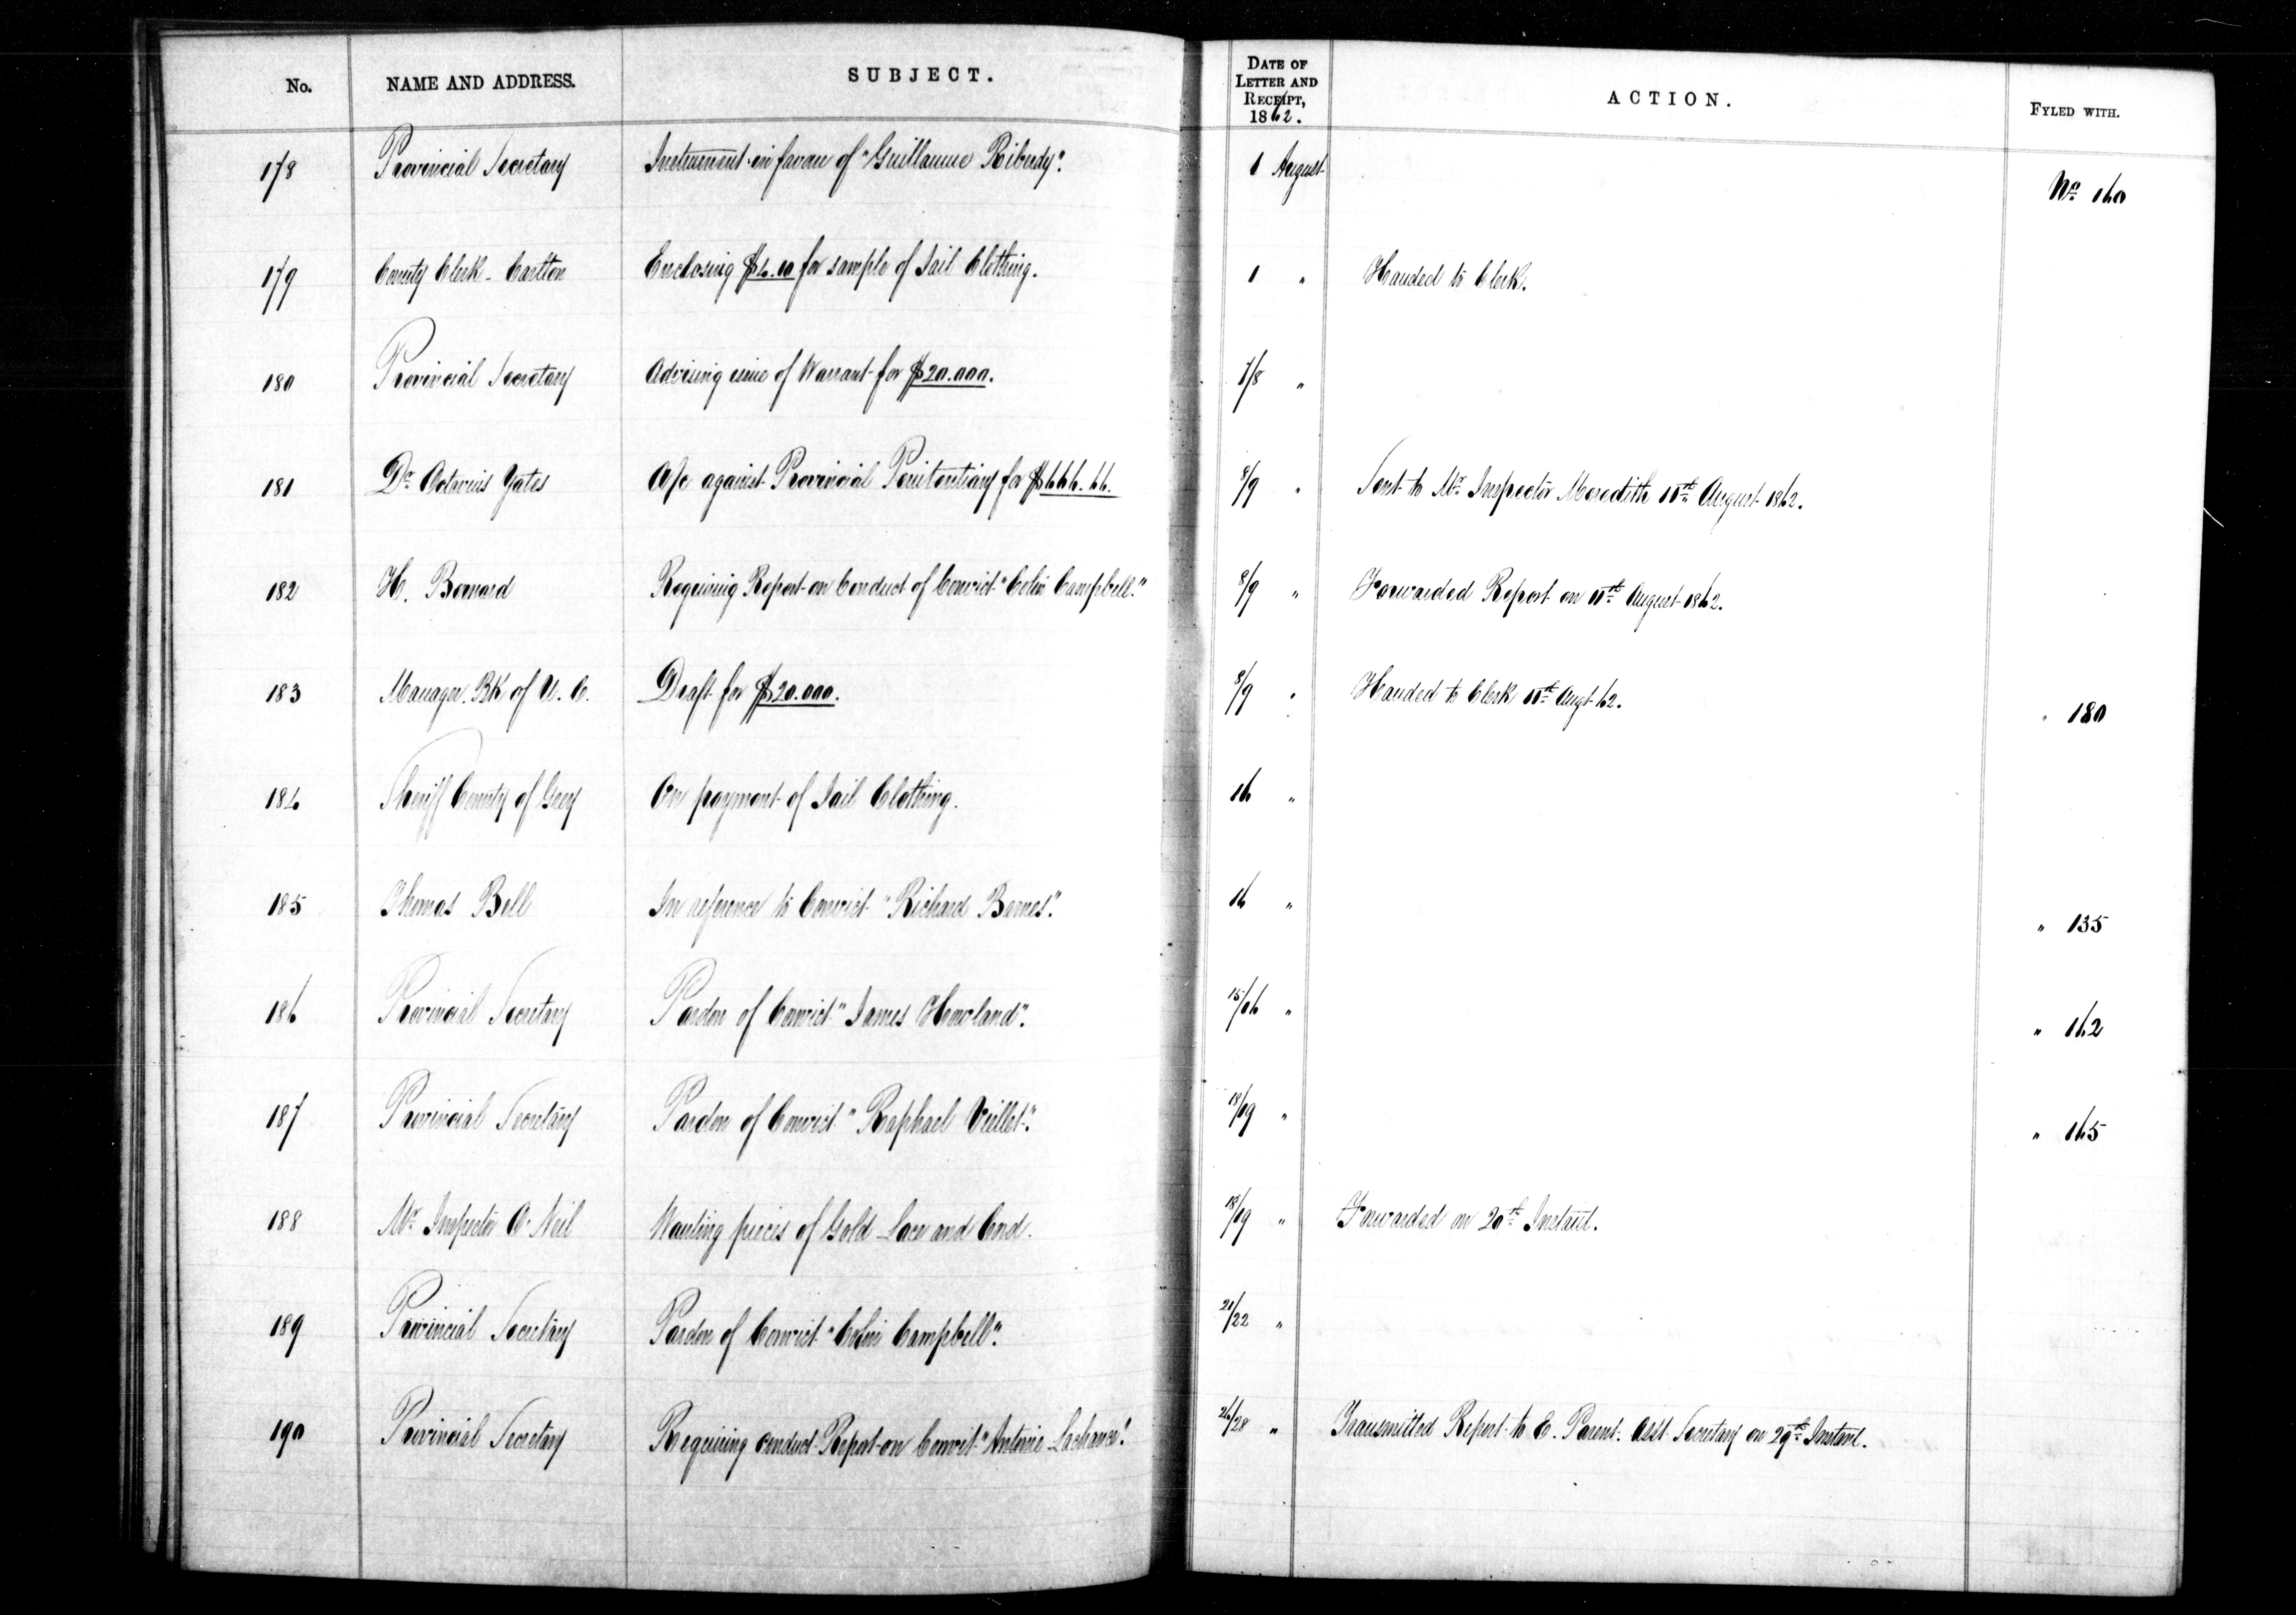 No. NAME AND ADDRESS. SUBJECT. DATE OF LETTER AND RECEIPT, 1862. ACTION. FYLED WITH.
178 Provincial Secretary Instrument in favour of "Guillaume Riburdy". 1 August No. 160
179 County Clerk - Carlton Enclosing $4.10 for sample of Jail Clothing. 1 " Handed to Clerk.
180 Provincial Secretary Advising issue of Warrant for $20.000. 7/8 "
181 Dr Octavius Yates A/c against Provincial Penitentiary for $666.66. 8/9 " Sent to Mr Inspector Meredith 11th August 1862.
182 H. Bernard Requiring Report on Conduct of Convict "Colin Campbell." 8/9 " Forwarded Report on 11th August 1862.
183 Manager. Bk of U. C. Draft for $20.000. 8/9 " Handed to Clerk 11th Augt 62. " 180
184 Sheriff County of Grey On payment of Jail Clothing. 16 "
185 Thomas Bell In reference to Convict "Richard Barnes". 16 " " 135
186 Provincial Secretary Pardon of Convict "James Howland". 15/16 " " 162
187 Provincial Secretary Pardon of Convict "Raphael Viellet". 18/19 " " 165
188 Mr Inspector O'Neil Wanting pieces of Gold Lace and Cord. 18/19 " Forwarded on 20th Instant.
189 Provincial Secretary Pardon of Convict "Colin Campbell". 21/22 "
190 Provincial Secretary Requiring conduct Report on Convict "Antoine Lachance". 26/28 " Transmitted Report to E. Parent. Asst Secretary on 29th Instant.